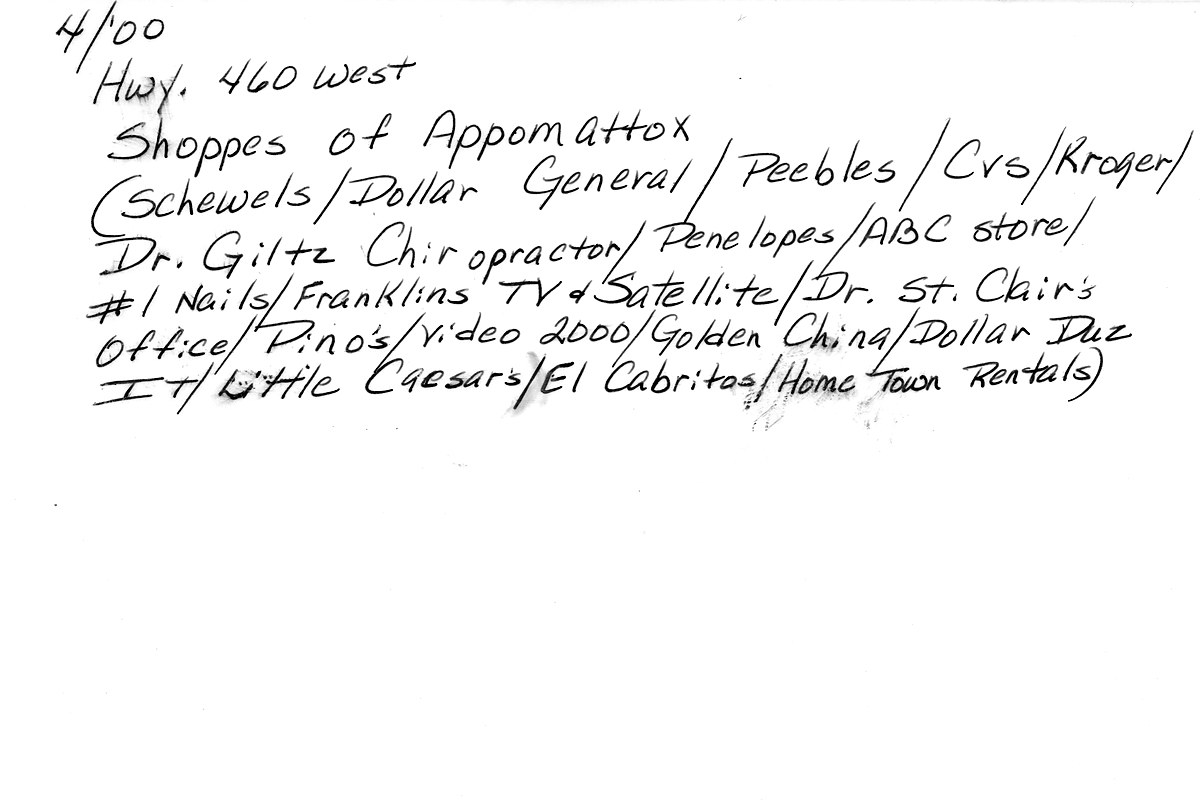 4/'00
Hwy. 460 west
Shoppes of Appomattox
(Schewels/Dollar General/Peebles/Cvs/Kroger/
Dr. Giltz Chiropractor/Penelopes/ABC store/
#1 Nails/Franklins TV & Satellite/Dr. St. Clair's
Office/Pino's/Video 2000/Golden China/Dollar Duz
It/Little Caesar's/El Cabritos/Home Town Rentals)